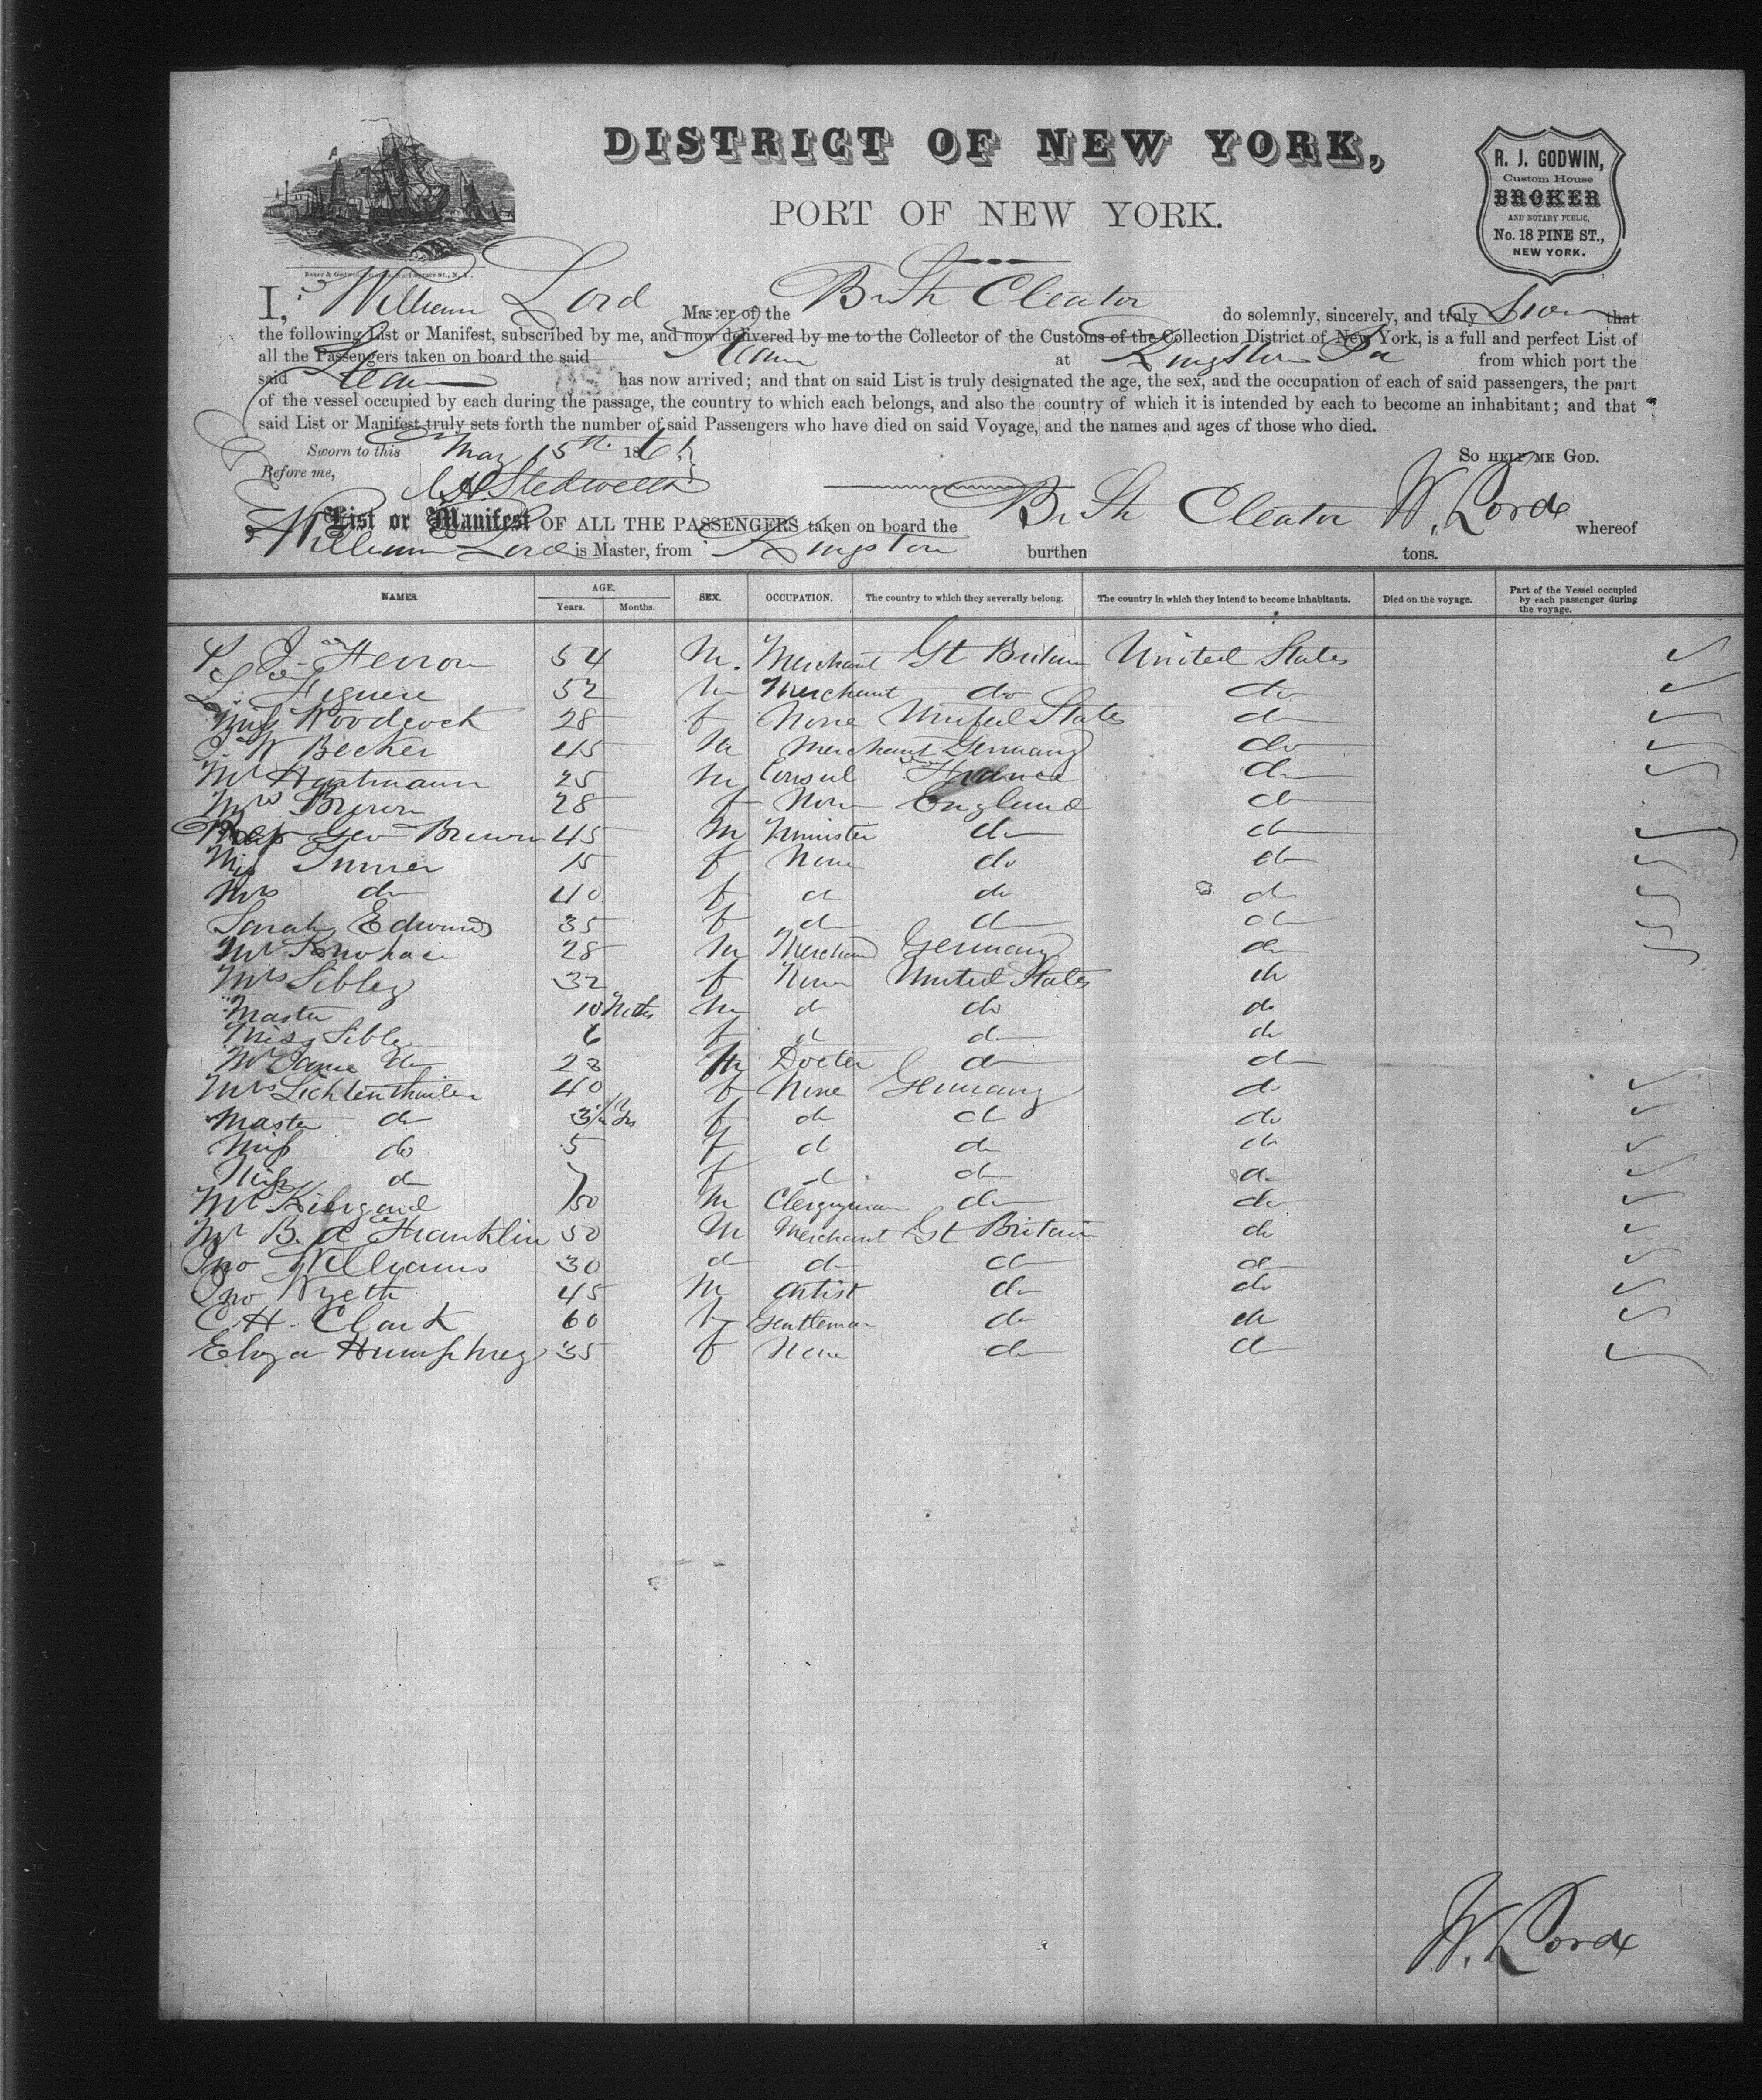 DISTRICT OF NEW YORK,
PORT OF NEW YORK.
R. J. GODWIN,
Custom House
BROKER
AND NOTARY PUBLIC,
No. 18 PINE ST.,
NEW YORK.
I, William Lord Master of the Br St Cleator do solemnly, sincerely, and truly that
the following List or Manifest, subscribed by me, and now delivered by me to the Collector of the Customs of the Collection District of New York, is a full and perfect List of
all the Passengers taken on board the said at Kingston Ja from which port the
said has now arrived; and that on said List is truly designated the age, the sex, and the occupation of each of said passengers, the part
of the vessel occupied by each during the passage, the country to which each belongs, and also the country of which it is intended by each to become an inhabitant; and that
said List or Manifest truly sets forth the number of said Passengers who have died on said Voyage, and the names and ages of those who died.
Sworn to this May 15th 186
So help me God.
Before me,
List or Manifest OF ALL THE PASSENGERS taken on board the Br St Cleator W. Lord whereof
William Lord is Master, from Kingston burthen tons.
NAMES. AGE. Years. Months. SEX. OCCUPATION. The country to which they severally belong. The country in which they intend to become inhabitants. Died on the voyage. Part of the Vessel occupied by each passenger during the voyage.
Herron 54 M. Merchant Gt Britain United States
52 m Merchant do do
Miss Woodcock 28 f None United States do
W Becker 45 m Merchant Germany do
Mr Hartmann 25 m Consul France do
Mrs Brown 28 f None England do
Geo Brown 45 m Minister do do
Miss Turner 15 f None do do
Mrs do 40 f do do do
Sarah Edwards 35 f do do do
Mr 28 m Merchant Germany do
Mrs Sibley 32 f None United States do
Master 10 Mths m do do do
Miss Sibley 6 f do do do
Mr do 23 m Docter do do
Mrs 40 f None Germany do
Master do f do do do
Miss do 5 f do do do
Miss do 7 f do do do
Mr 50 M Clergyman do do
Mr B. Franklin 50 M Merchant Gt Britain do
Jno Williams 30 do do do do
Jno Wyeth 45 M Artist do do
C. H. Clark 60 Gentleman do do
Eliza Humphrey 35 f None do do
W. Lord